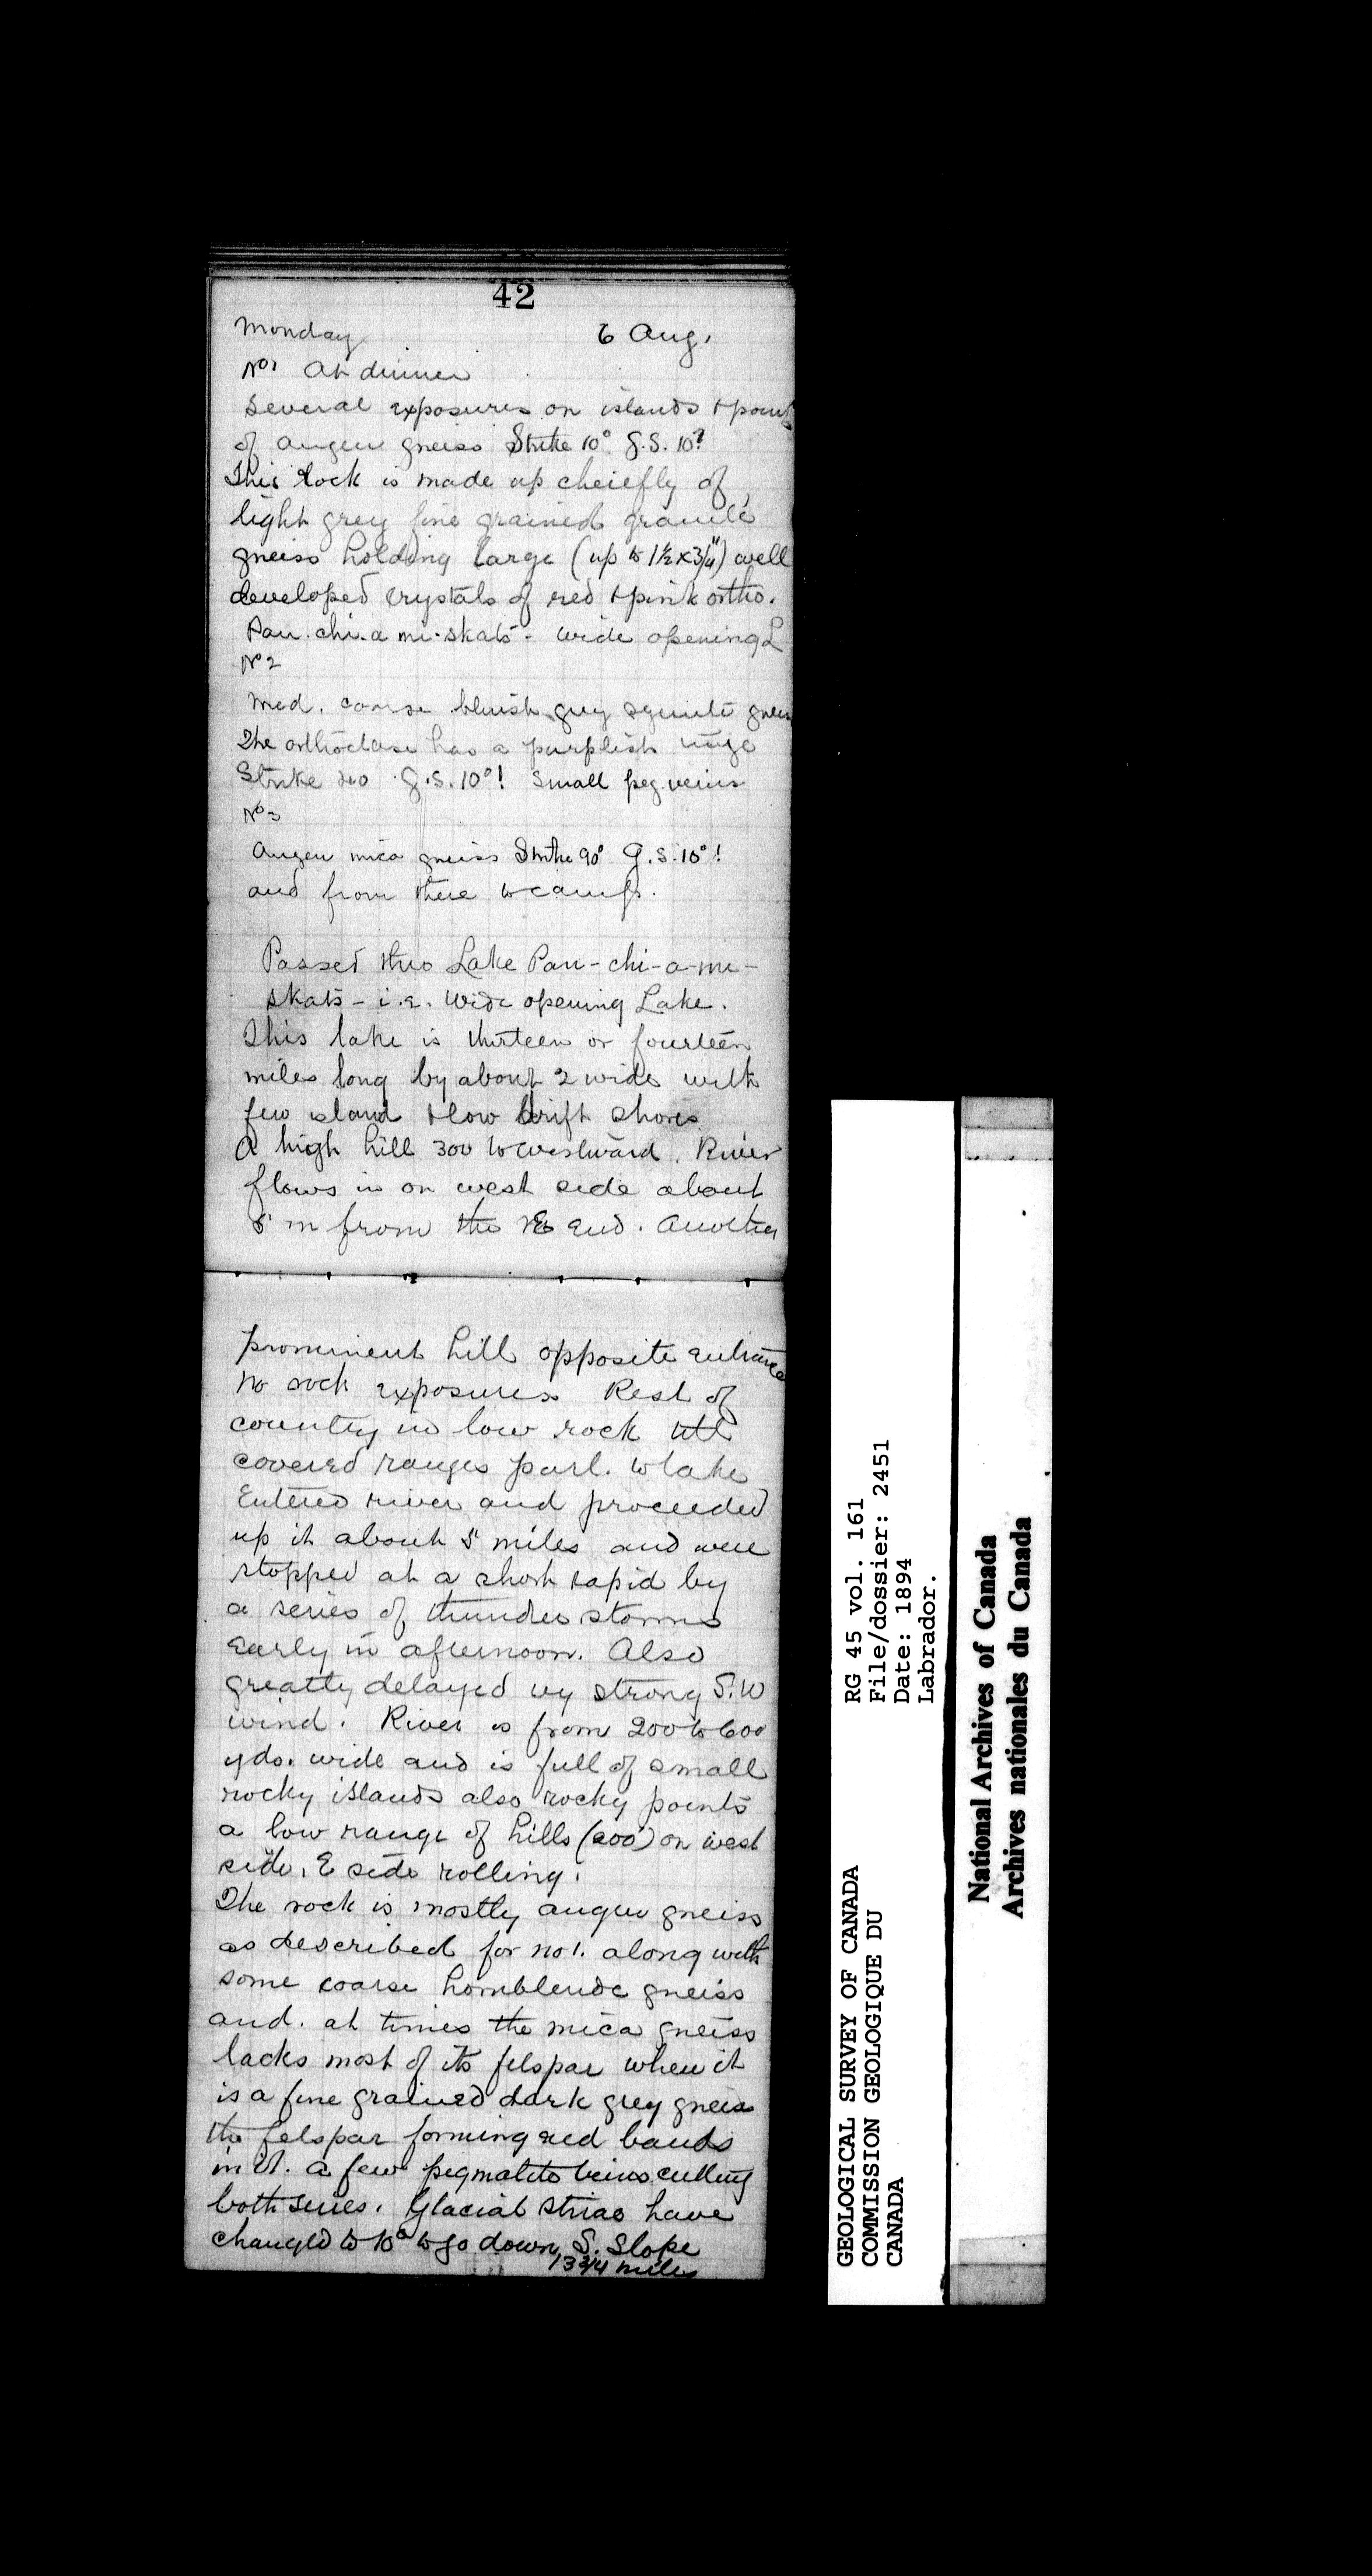 42
Monday 6 Aug.
No 1 At dinner
Several exposures on islands & points
of augen gneiss Strike 10° G.S. 10?
This rock is made up cheiefly of
light grey fine grained granite
gneiss holding large (up to 1½ x 3/4") well
developed crystals of red & pink ortho.
Pau-chi-a mi-skats - wide opening L
No 2
Med. coarse bluish grey syenite gneiss
The orthoclase has a purplish tinge
Strike G.S. 10°! Small peg. veins
No 3
Augen mica gneiss Strike 90° G.S. 10°!
and from there to camp.
Passed thro Lake Pau-chi-a-mi-
skats - i.e. Wide opening Lake.
This lake is thirteen or fourteen
miles long by about 2 wide with
few island & low drift shores
A high hill 300 to westward. River
flows in on west side about
5 m from the end. Another
prominent hill opposite entrance
No rock exposures Rest of
country in low rock till
covered ranges parl. to lake
Entered river and proceeded
up it about 5 miles and were
stopped at a short rapid by
a series of thunder storms
early in afternoon. Also
greatly delayed by strong S.W
wind. River is from 200 to 600
yds. wide and is full of small
rocky islands also rocky points
a low range of hills (200') on west
side, E side rolling.
The rock is mostly augen gneiss
as described for no 1. along with
some coarse hornblende gneiss
and. at times the mica gneiss
lacks most of its felspar when it
is a fine grained dark grey gneiss
the felspar forming red bands
in it. a few pegmatite veins cutting
both series. Glacial striae have
changed to 10° to go down S. Slope
13 3/4 miles
RG 45 vol. 161
File/dossier: 2451
Date: 1894
Labrador.
GEOLOGICAL SURVEY OF CANADA
COMMISSION GEOLOGIQUE DU
CANADA
National Archives of Canada
Archives nationales du Canada